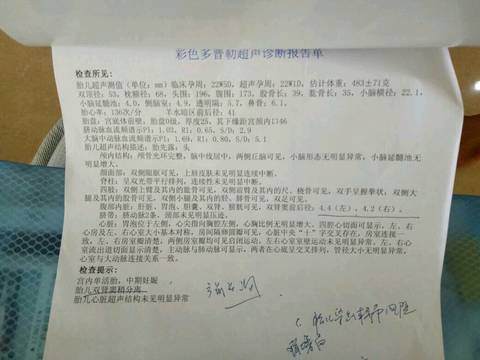 彩色多普勒超声诊断报告单
检查所见:
胎儿超声测值(单位:mm)临床孕周:22W5D,超声孕周:22W1D,估计体重:483±71克
双顶径:53,枕额径:68,头围:196,腹围:173,股骨长:39,肱骨长:35,小脑横径:22.1,
小脑延髓池:4.0,侧脑室:4.9,透明隔:5.7,鼻骨:6.1,
胎心率:136次/分 羊水暗区前后径:41
胎盘:宫底体前壁,胎盘0级,厚度25,其下缘距宫颈内口46
脐动脉血流频谱示PI:1.03,RI:0.65,S/D:2.9
大脑中动脉血流频谱示PI:1.69,RI:0.80,S/D:5.1
胎儿超声结构描述:胎先露:头
颅内结构:颅骨光环完整,脑中线居中,两侧丘脑可见,小脑形态无明显异常,小脑延髓池无
明显增大。
颜面部:双侧眼眶可见,上唇皮肤未见明显连续中断。
脊柱:呈双光带平行排列,连续性未见明显中断。
四肢:双侧上臂及其内的肱骨可见,双侧前臂及其内的尺、桡骨可见,双手呈握拳状,双侧大
腿及其内的股骨可见,双侧小腿及其内的胫、腓骨可见,双足可见。
腹部内脏:肝脏、胃泡、胆囊、双肾、膀胱可见,双肾集合前后径:4.4(左),4.2(右)。
脐带:脐动脉2条,颈部未见明显压迹。
心脏:胃泡位于左侧,心尖指向胸腔左侧,心胸比例无明显增大。四腔心切面可显示,左、右
心房及左、右心室大小基本对称,房间隔卵圆瓣可见,心脏中央“十”字交叉存在,房室连接一
致,左、右房室瓣清楚,两侧房室瓣均可见启闭运动,左右心室室壁运动未见明显异常。左、右心
室流出道切面显示清楚,主动脉与肺动脉可显示,两者在心底呈交叉排列,管径大小无明显异常。
心室与大动脉连接关系一致。
检查提示:
宫内单活胎,中期妊娠
胎儿双肾窦稍分离
胎儿心脏超声结构未见明显异常